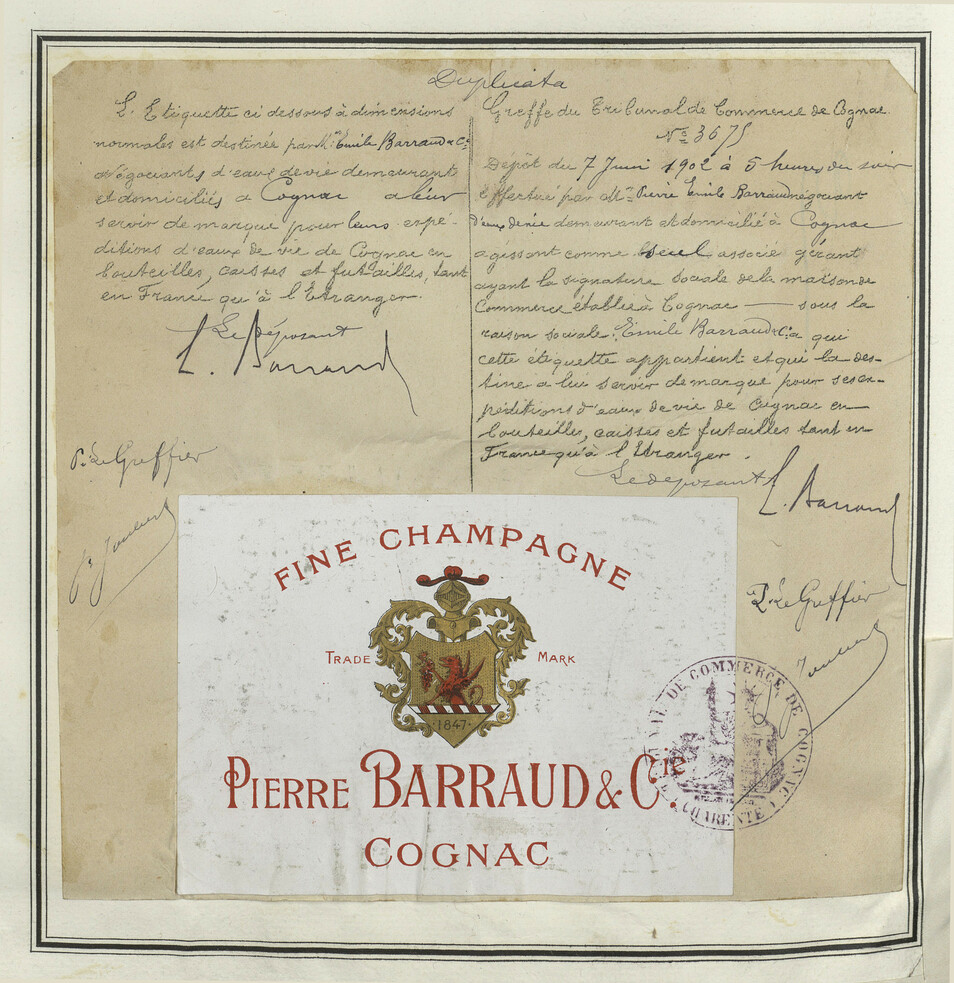 Duplicata
L'Etiquette ci dessous à dimensions
normales est destinée par Mr. Emile Barraud & Cie
négociants d'eaux de vie demeurant
et domiciliés à Cognac à leur
servir de marque pour leurs expé-
ditions d'eaux de vie de Cognac en
bouteilles, caisses et futailles, tant
en France qu'à l'Etranger.
Le déposant
E. Barraud
Pr. Le Greffier
Greffe du Tribunal de Commerce de Cognac
No 3675
Dépôt du 7 Juin 1902 à 5 heures du soir
effectué par Mr. Pierre Emile Barraud négociant
d'eaux de vie demeurant et domicilié à Cognac
agissant comme seul associé gérant
ayant la signature sociale de la maison de
Commerce établie à Cognac — sous la
raison sociale: Emile Barraud & Cie à qui
cette étiquette appartient et qui la des-
tine à lui servir de marque pour ses ex-
péditions d'eaux de vie de Cognac en
bouteilles, caisses et futailles tant en
France qu'à l'Etranger.
Le déposant
E. Barraud
Pr. Le Greffier
FINE CHAMPAGNE
TRADE MARK
1847
PIERRE BARRAUD & Cie.
COGNAC
TRIBUNAL DE COMMERCE DE COGNAC
CHARENTE